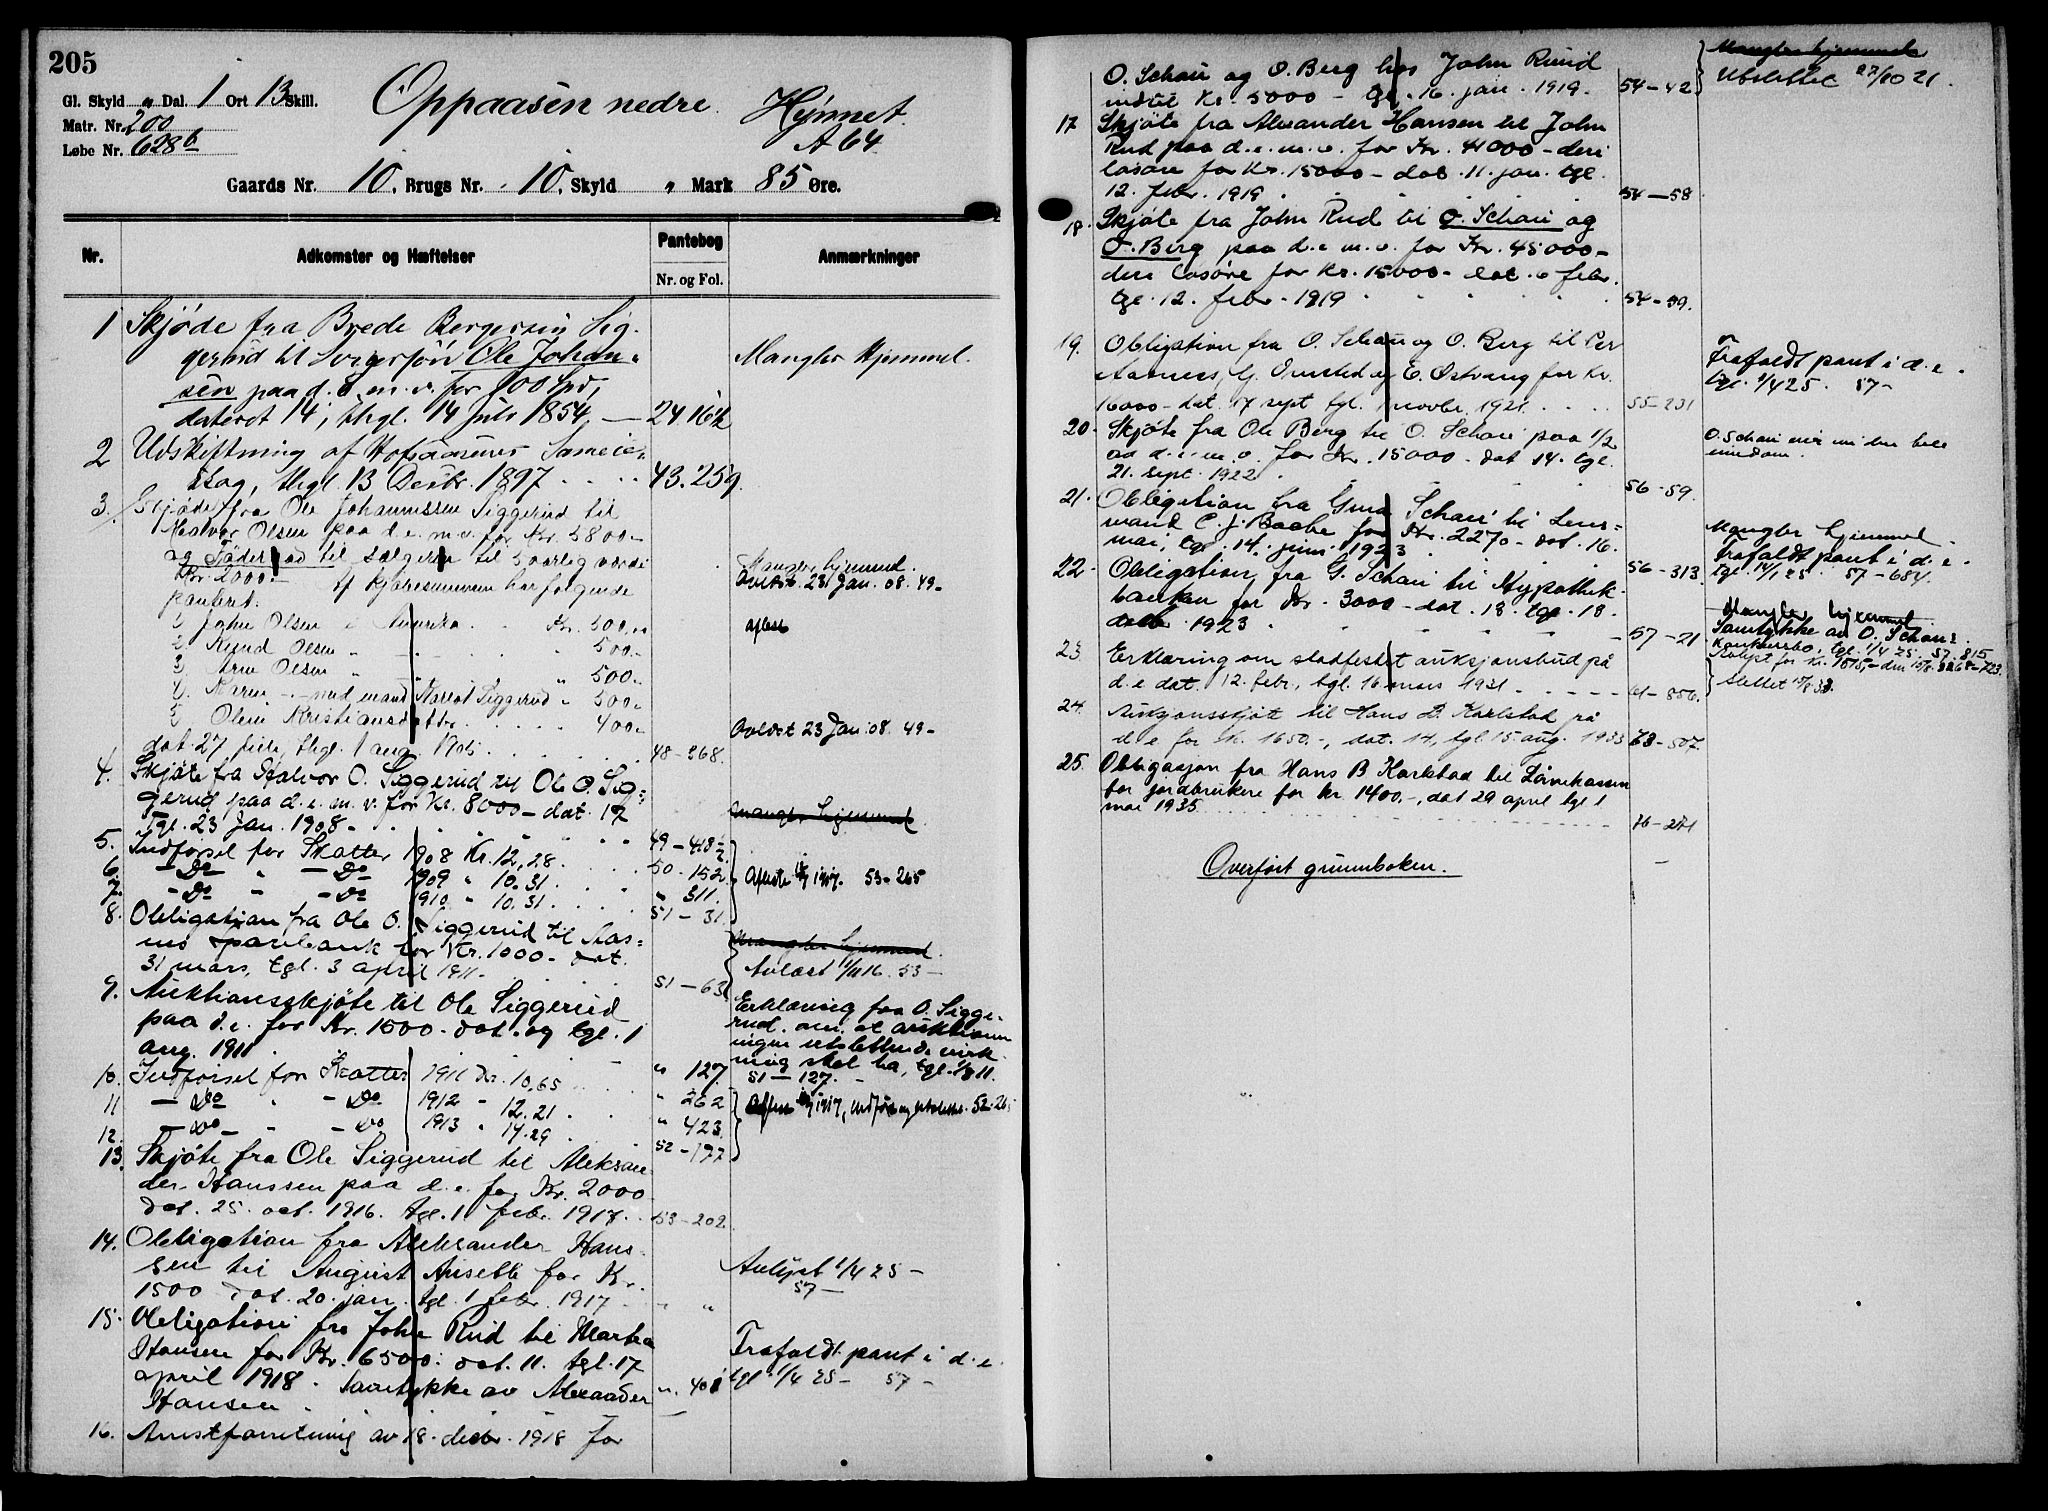 205
Gl. Skyld „ Dal. 1 Ort 13 Skill.
Matr. Nr. 200
Løbe Nr. 628 b
Oppaasen nedre.
Hjemmet.
A 64
Gaards Nr. 10, Brugs Nr. 10, Skyld „ Mark 85 Øre.
Nr.
Adkomster og Hæftelser
Pantebog
Nr. og Fol.
Anmærkninger
1 Skjøde fra Brede Bergersen Sig-
gerud til Ole Johan-
sen paa d. e. m. v. for 900 Spd,
dateret 14, thgl. 14 Juli 1854 — 24.
Mangler Hjemmel.
2 Udskiftning af Sameie,
thgl. 13 Decbr. 1897 . . . . 43.259.
3. Skjøde fra Ole Johannessen Siggerud til
Halvor Olsen paa d. e. m. v. for Kr. 5800.-
og Føderaad til sælgeren til 5 aarlig værdi
Kr. 2000.- Af kjøbesummen har følgende
panteret:
Mangler hjemmel.
23 Jan. 08. 49-
1) John Olsen i Amerika . . Kr. 500,00
aflæst
2) Knud Olsen „ „ 500.-
3) Arne Olsen „ „ 500.-
4) Karen -"- med mand Siggerud „ 500.-
5) Oline Kristiansdatter . . . . 400.-
dat. 27 juli, thgl. 1 aug. 1905 . . . 48-368.
Avlæst 23 Jan. 08. 49-
4. Skjøte fra Halvor O. Siggerud til Ole O. Sig-
gerud paa d. e. m. v. for Kr. 8000 - dat. 17
tgl. 23 Jan. 1908 -
Mangler hjemmel
5. Indførsel for Skatter 1908 Kr. 12,28. 49-
6. - Do - Do 1909 „ 10.31. 50-152
7. - Do „ - Do 1910 „ 10.31. „ 311.
Aflæste 1917. 53-265
8. Obligation fra Ole O. Siggerud til Aas-
nes sparebank for Kr. 1000 - dat.
31 mars, tgl. 3 april 1911 -
51-31
Mangler hjemmel.
Avlæst 1/11 16. 53-
9. Auktionsskjøte til Ole Siggerud
paa d. e. for Kr. 1500 - dat. og tgl. 1
aug. 1911
51-63
Erklæring fra O. Sigge-
rud. om. at auktionen
ingen utslettende virk-
ning skal ha, tgl. 1/8 11.
51-127.
10. Indførsel for Skatter 1911 Kr. 10,65 „ 127
11 - Do „ - Do 1912 „ 12.21 . „ 262
12. - Do - „ - Do 1913 „ 14.29 . „ 423
13. Skjøte fra Ole Siggerud til Aleksan-
der Hanssen paa d. e. for Kr. 2000
dat. 25. oct. 1916. tgl. 1 febr. 1917 . . 53-202.
52-177
14. Obligation fra Aleksander Hans-
sen til August for Kr.
1500 dat. 20. jan. tgl. 1 febr. 1917 . „ „
Avlyst 1/4 25 -
57 -
15. Obligation fra John Rud til Martha
Hansen for Kr. 6500. dat. 11. tgl. 17
april 1918. Samtykke av Alexander
Hansen
Frafaldt pant i d. e.
tgl 1/4 25 - 57 -
16. Arrestforretning av 18. decbr. 1918 for
O. Schau og O. Berg hos John Ruud
indtil Kr. 5000 - tgl. 16. jan. 1919. 54-42
Mangler hjemmel
Utslettet 27/10 21.
17 Skjøte fra Alexander Hansen til John
Rud paa d. e. m. v. for Kr. 41000 - deri
løsøre for Kr. 15000 - dat. 11. jan. tgl.
12. febr. 1919 . . . . 54-58
18. Skjøte fra John Rud til O. Schau og
O. Berg paa d. e. m. v. for Kr. 45000 -
deri løsøre for Kr. 15000 - dat. 6 febr.
tgl. 12. febr. 1919 . . . . 54-59.
19. Obligation fra O. Schau og O. Berg til Per
Aasness, Ornstad og E. Østvang for Kr.
16000 - dat. 17 sept tgl. 1 novbr. 1921 . . . . 55-231
Frafaldt pant i d. e.
tgl. 1/4 25. 57-
20. Skjøte fra Ole Berg til O. Schau paa 1/2
av d. e. m. v. for Kr. 15000 - dat 14. tgl.
21. sept. 1922 . . . 56-59.
O. Schau eier nu den hele
eiendom.
21. Obligation fra Schau til Lens-
mand C. J. Baabe for Kr. 2270 - dat. 16.
mai, tgl. 14. juni 1923 . . 56-313.
Mangler hjemmel.
Frafaldt pant i d. e.
tgl. 14/1 25 57-684.
22. Obligation fra G. Schau til Hypothek-
banken for Kr. 3000 - dat. 13. tgl. 18.
1923 . . . . 57-21
Mangler hjemmel
Samtykke av O. Schaus
konkursbo, tgl. 1/4 25. 57.815
23. Erklæring om stadfestet auksjonsbud på
d. e dat. 12. febr., tgl. 16 mars 1931 . - - - - - 61-856.
Slettet 15/8 33.
24. Auksjonsskjøte til Hans B. Karlstad på
d e for kr. 1650.-, dat. 14, tgl. 15. aug. 1933 63-507.
25. Obligasjon fra Hans B Karlstad til Lånekassen
for jordbrukere for kr. 1400.-, dat 29 april tgl 1
mai 1935 . . . . 76-271
Overført grunnboken.